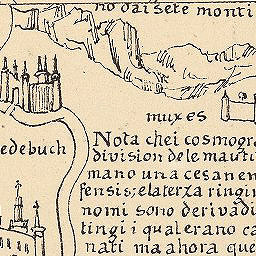 no dai sete monti
mux es
edebuch
Nota chei cosmogra
division dele mauti
mano una cesanen
fensis; elaterza ringin
nomi sono derivadi
tingi i qual erano ca
nati ma ahora que